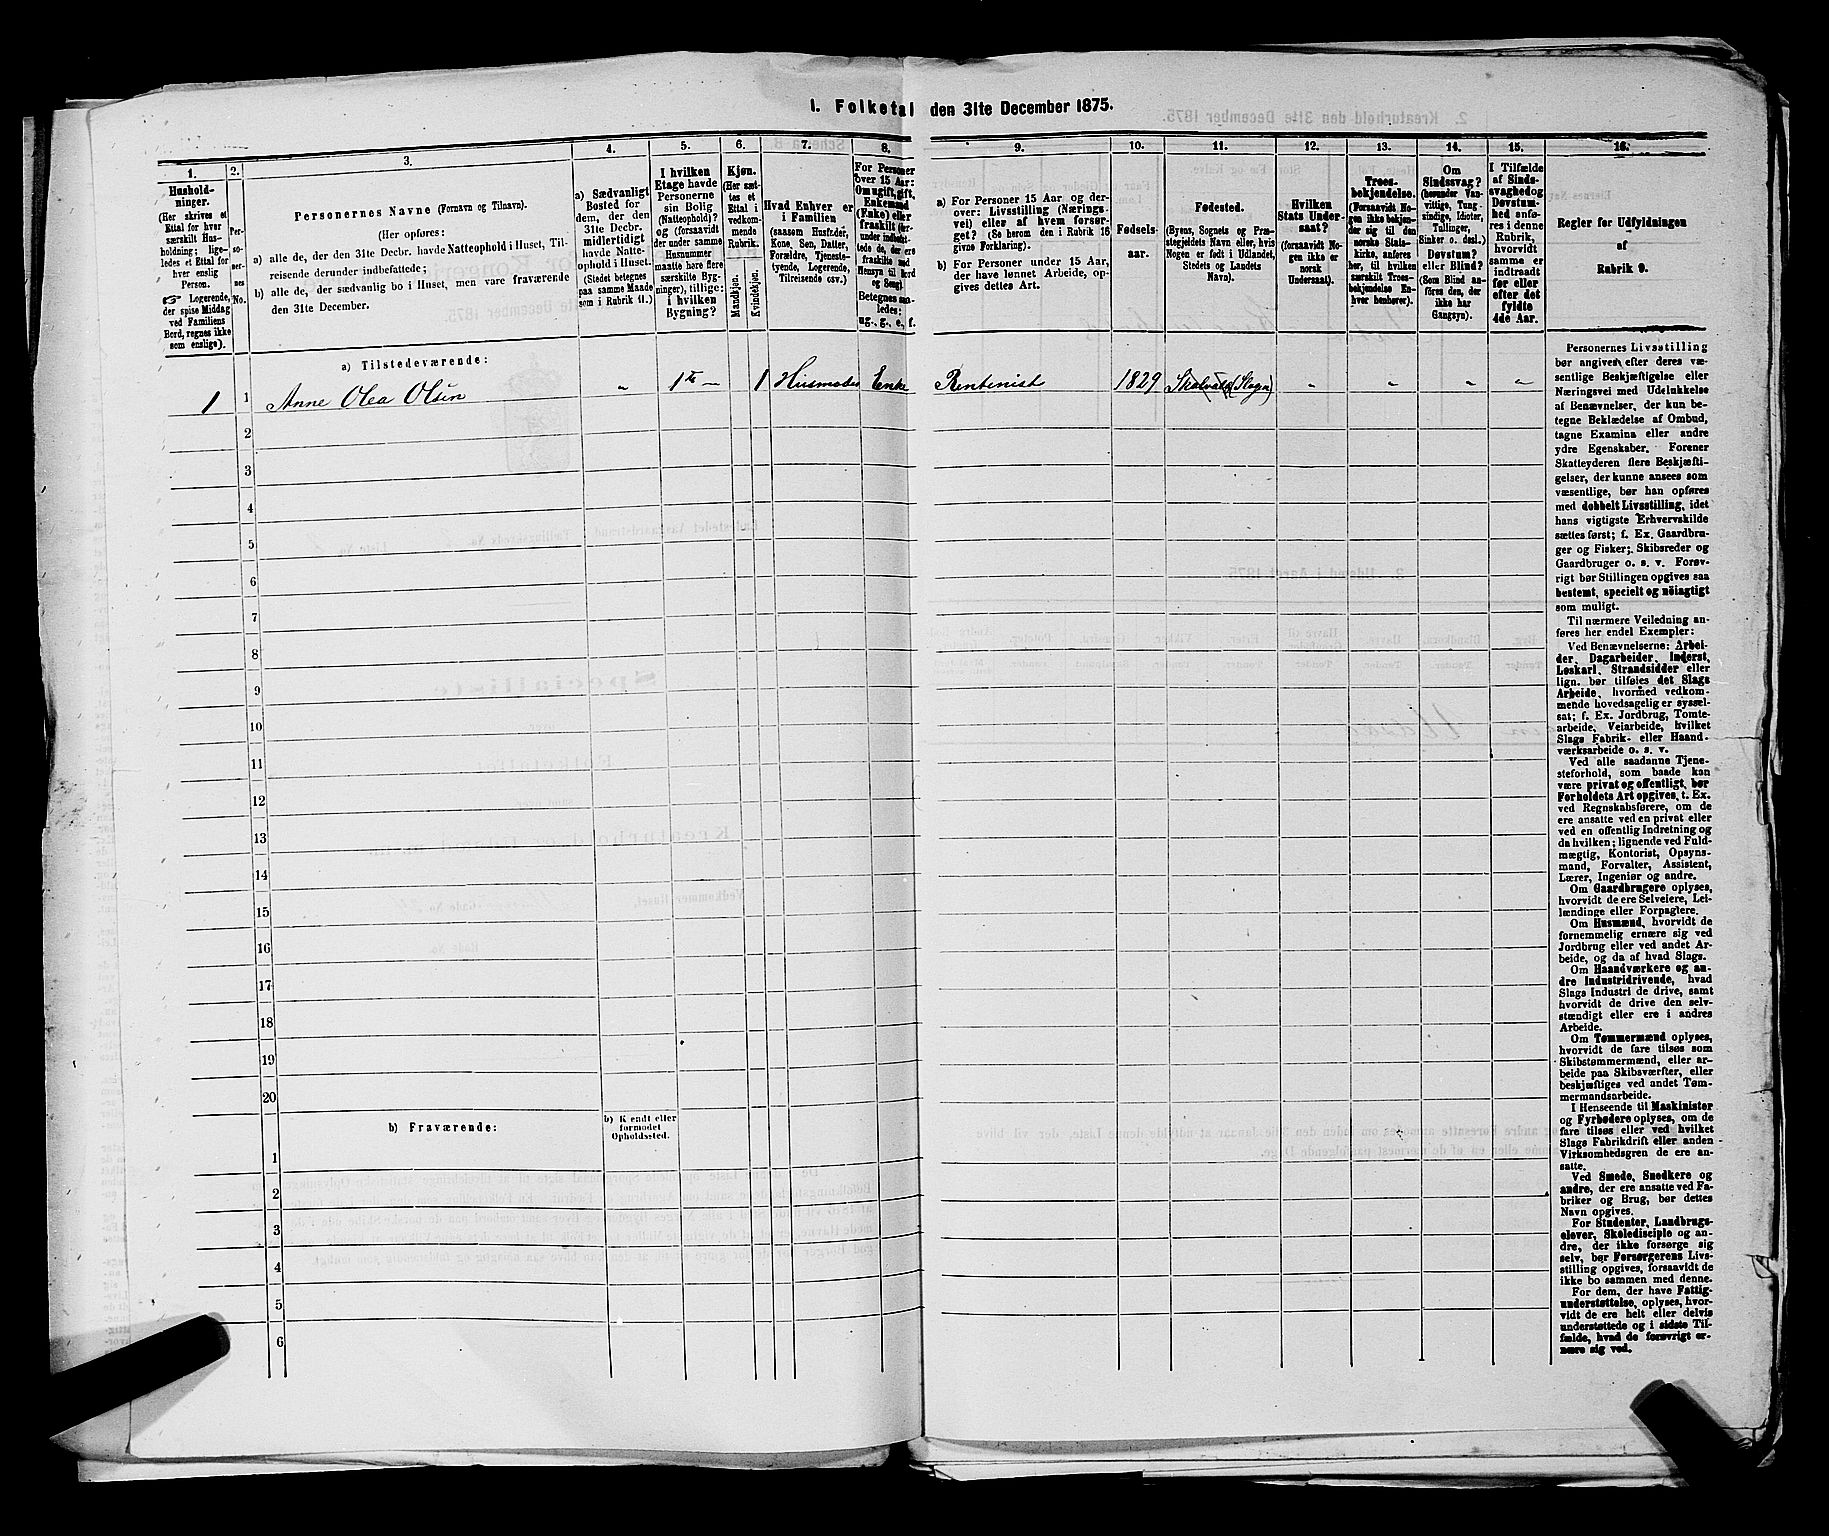 1. Folketal den 31te December 1875.
1.
2.
3.
4.
5.
6.
7.
8.
9.
10.
11.
12.
13.
14.
15.
16.
Hushold-
ninger.
(Her skrives et
Ettal for hver
særskilt Hus-
holdning; lige-
ledes et Ettal for
hver enslig
Person.
☞ Logerende,
der spise Middag
ved Familiens
Bord, regnes ikke
som enslige).
Per-
so-
ner-
nes
No.
Personernes Navne (Fornavn og Tilnavn).
(Her opføres:
a) alle de, der den 31te Decbr. havde Natteophold i Huset, Til-
reisende derunder indbefattede;
b) alle de, der sædvanlig bo i Huset, men vare fraværende
den 31te December.
a) Sædvanligt
Bosted for
dem, der den
31te Decbr.
midlertidigt
havde Natte-
ophold i Huset.
(Stedet betegnes
paa samme Maade
som i Rubrik 11.)
I hvilken
Etage havde
Personerne
sin Bolig
(Natteophold)?
og (forsaavidt
der under samme
Husnummer
maatte høre flere
særskilte Byg-
ninger), tillige:
i hvilken
Bygning?
Kjøn.
(Her sæt-
tes et
Ettal i
vedkom-
mende
Rubrik.
Mandkjøn.
Kvindekjøn.
Hvad Enhver er
i Familien
(saasom Husfader,
Kone, Søn, Datter,
Forældre, Tjeneste-
tyende, Logerende,
Tilreisende osv.)
For Personer
over 15 Aar:
Om ugift, gift,
Enkemand
(Enke) eller
fraskilt (her-
under indbefat-
tede de, der ere
fraskilte med
Hensyn til Bord
og Seng).
Betegnes saa-
ledes:
ug., g., e., f.
a) For Personer 15 Aar og der-
over: Livsstilling (Nærings-
vei) eller af hvem forsør-
get? (Se herom den i Rubrik 16
givne Forklaring).
b) For Personer under 15 Aar,
der have lønnet Arbeide, op-
gives dettes Art.
Fødsels-
aar.
Fødested.
(Byens, Sognets og Præ-
stegjeldets Navn eller, hvis
Nogen er født i Udlandet,
Stedets og Landets
Navn).
Hvilken
Stats Under-
saat?
(forsaavidt No-
gen ikke er
norsk
Undersaat).
Troes-
bekjendelse.
(Forsaavidt No-
gen ikke bekjen-
der sig til den
norske Stats-
kirke, anføres
her, til hvilken
særskilt Troes-
bekjendelse En-
hver henhører).
Om
Sindssvag?
(herunder Van-
vittige, Tung-
sindige, Idioter,
Tullinger,
Sinker o. desl.)
Døvstum?
eller Blind?
(Som Blind an-
føres den, der
ikke har
Gangsyn).
I Tilfælde
af Sinds-
svaghed og
Døvstum-
hed anfø-
res i denne
Rubrik,
hvorvidt
samme er
indtraadt
før eller
efter det
fyldte
4de Aar.
Regler for Udfyldningen
af
Rubrik 9.
a) Tilstedeværende:
1 1 Anne Olea Olsen „ 1te — 1 Husmoder Enke Rentenist 1829 (Slagn) „ „ „ „
2
3
4
5
6
7
8
9
10
11
12
13
14
15
16
17
18
19
20
b) Fraværende:
b) Kjendt eller
formodet
Opholdssted.
1
2
3
4
5
6
Personernes Livsstilling
bør angives efter deres væ-
sentlige Beskjæftigelse eller
Næringsvei med Udelukkelse
af Benævnelser, der kun be-
tegne Beklædelse af Ombud,
tagne Examina eller andre
ydre Egenskaber. Forener
Skatteyderen flere Beskjæfti-
gelser, der kunne ansees som
væsentlige, bør han opføres
med dobbelt Livsstilling, idet
hans vigtigste Erhvervskilde
sættes først; f. Ex. Gaardbru-
ger og Fisker; Skibsreder og
Gaardbruger o. s. v. Forøv-
rigt bør Stillingen opgives saa
bestemt, specielt og nöiagtigt
som muligt.
Til nærmere Veiledning an-
føres her endel Exempler:
Ved Benævnelserne: Arbei-
der, Dagarbeider, Inderst,
Løskarl, Strandsidder eller
lign. bør tilføies det Slags
Arbeide, hvormed vedkom-
mende hovedsagelig er syssel-
sat; f. Ex. Jordbrug, Tomte-
arbeide, Veiarbeide, hvilket
Slags Fabrik- eller Haand-
værksarbeide o. s. v.
Ved alle saadanne Tjene-
steforhold, som baade kan
være privat og offentligt, bør
Forholdets Art opgives, t. Ex.
ved Regnskabsførere, om de
ere ansatte ved en privat eller
ved en offentlig Indretning og
da hvilken; lignende ved Fuld-
mægtig, Kontorist, Opsyns-
mand, Forvalter, Assistent,
Lærer, Ingeniør og andre.
Om Gaardbrugere oplyses,
hvorvidt de ere Selveiere, Lei-
lændinge eller Forpagtere.
Om Husmænd, hvorvidt de
fornemmelig ernære sig ved
Jordbrug eller ved andet Ar-
beide, og da af hvad Slags.
Om Haandværkere og an-
dre Industridrivende, hvad
Slags Industri de drive, samt
hvorvidt de drive den selv-
stændigt eller ere i andres
Arbeide.
Om Tømmermænd oplyses,
hvorvidt de fare tilsøs som
Skibstømmermænd, eller ar-
beide paa Skibsværfter, eller
beskjæftiges ved andet Tøm-
mermandsarbeide.
I Henseende til Maskinister
og Fyrbødere oplyses, om de
fare tilsøs eller ved hvilket
Slags Fabrikdrift eller anden
Virksomhedsgren de ere an-
satte.
Ved Smede, Snedkere og
andre, der ere ansatte ved Fa-
briker og Brug, bør dettes
Navn opgives.
For Studenter, Landbrugs-
elever, Skoledisciple og an-
dre, der ikke forsørge sig
selv, bør Forsørgerens Livs-
stilling opgives, forsaavidt de
ikke bo sammen med denne.
For dem, der have Fattig-
understøttelse, oplyses, hvor-
vidt de ere helt eller delvis
understøttede og i sidste Til-
fælde, hvad de forøvrigt er-
nære sig ved.